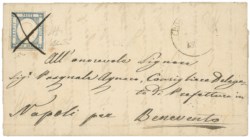 All'onorevole Signore
Sig. Pasquale Agnaro, Consigliere Delega-
to di Prefettura in
Napoli per Benevento